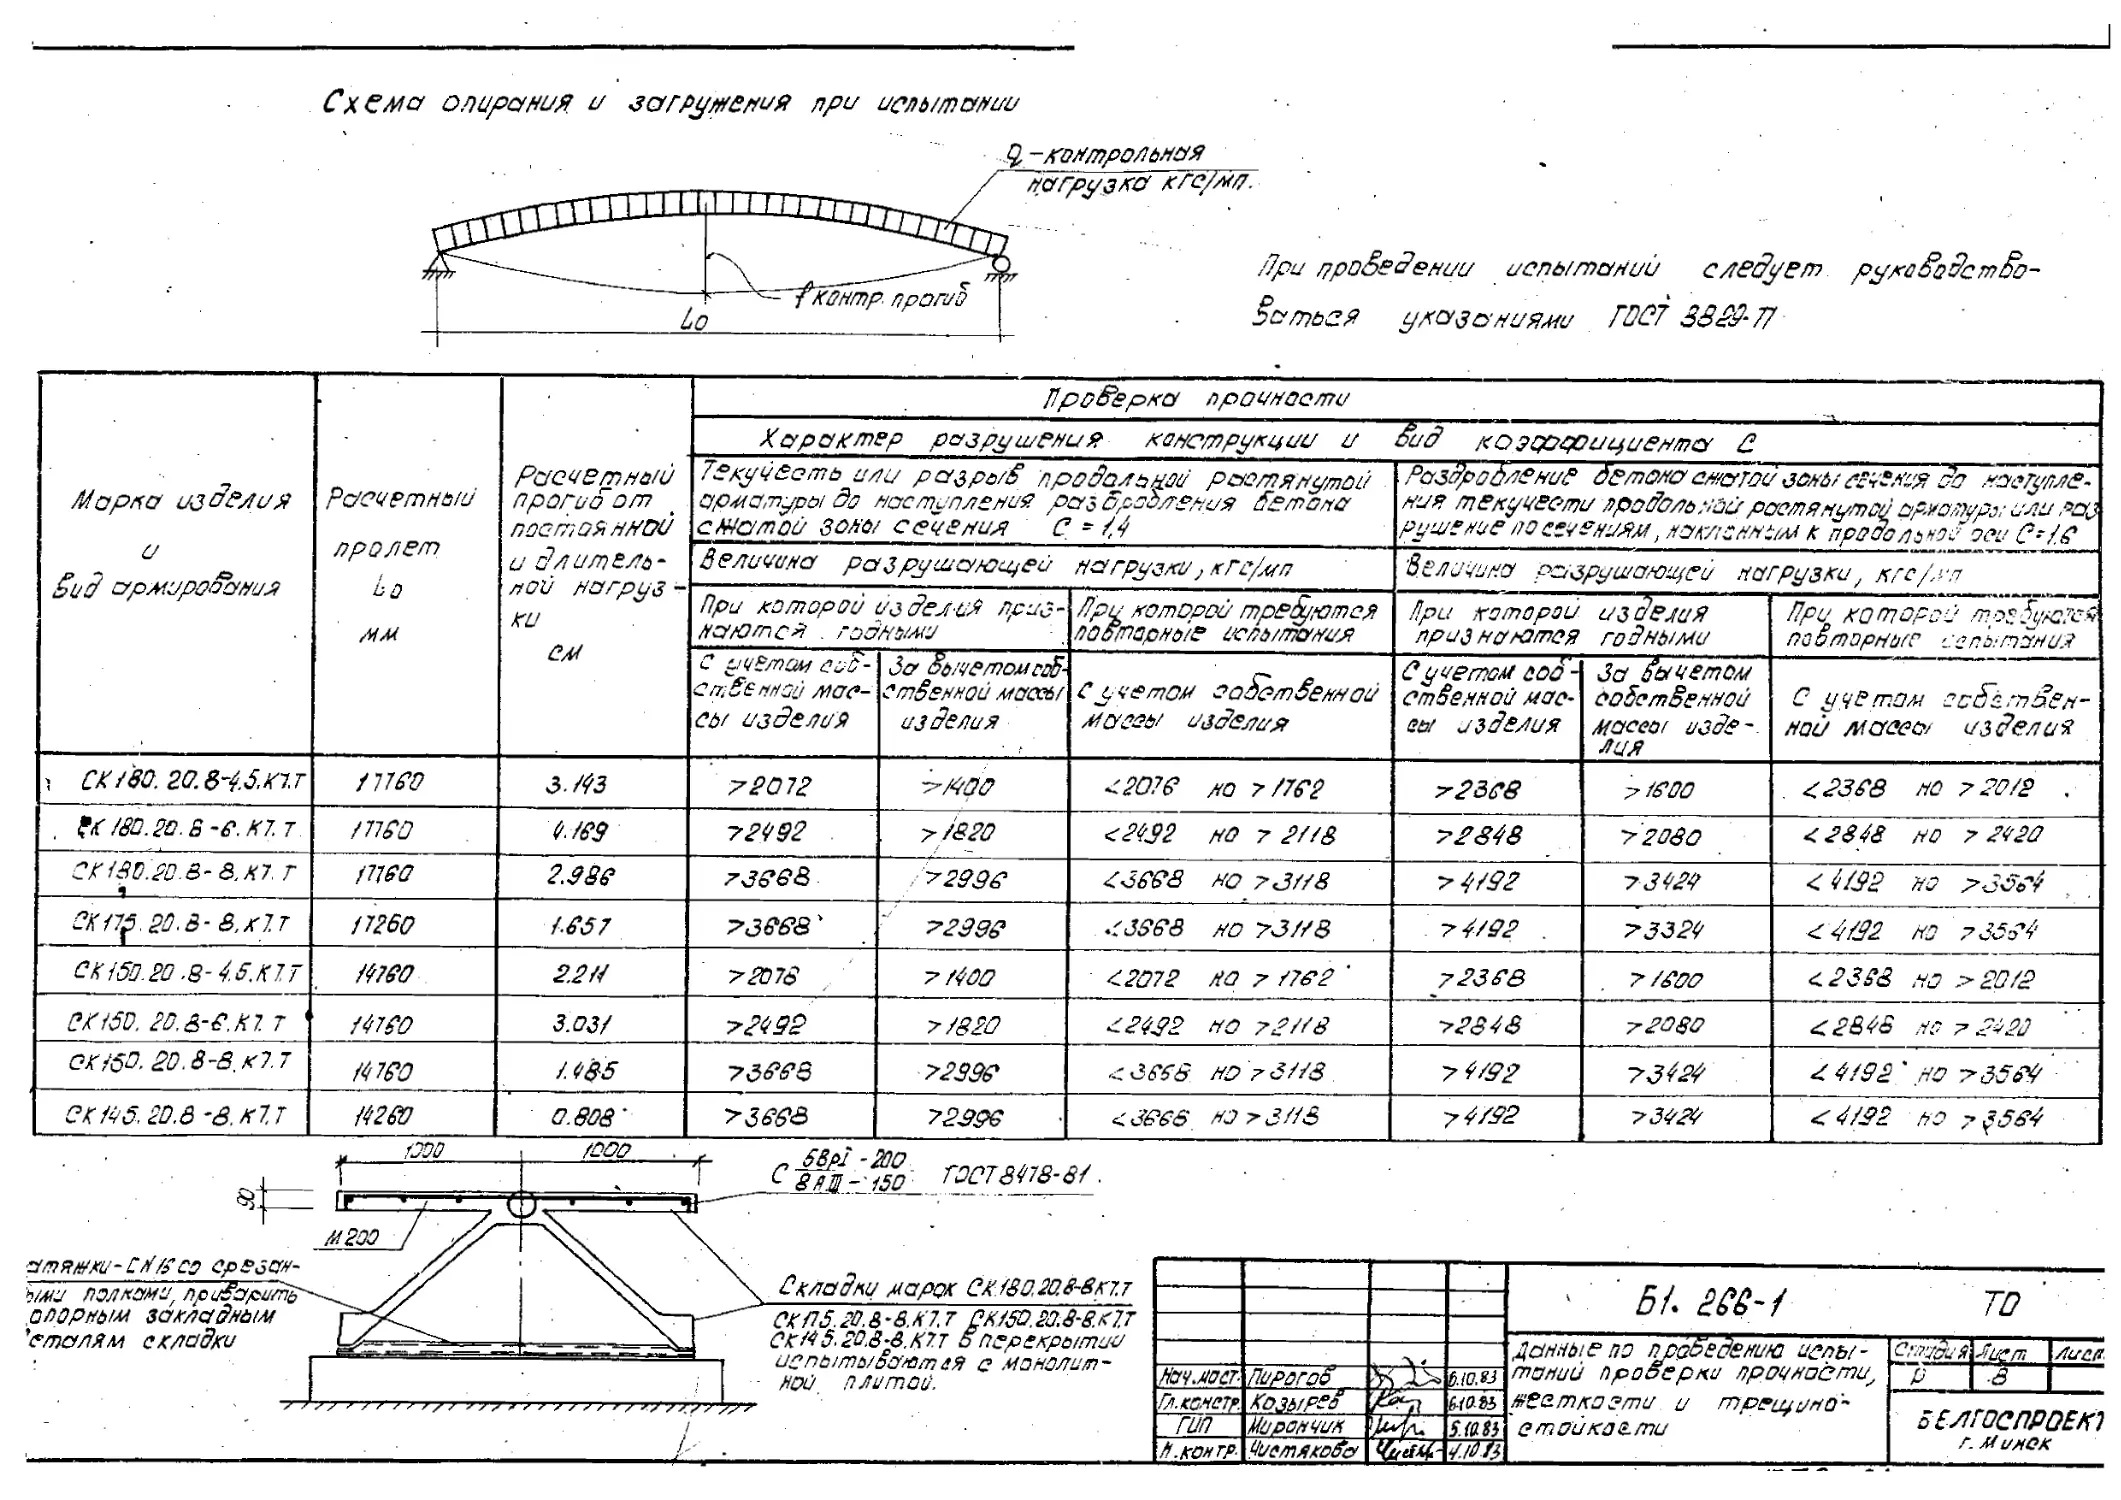 Схема опирания и загружения при испытании
q - контрольная
нагрузка кгс/мп.
f контр. прогиб
Lo
При проведении испытаний следует руководство-
ваться указаниями ГОСТ 8829-77
Марка изделия
и
вид армирования
Расчетный
пролет
Lo
мм
Расчетный
прогиб от
постоянной
и длитель-
ной нагруз-
ки
см
Проверка прочности
Характер разрушения конструкции и вид коэффициента С
Текучесть или разрыв продольной растянутой
арматуры до наступления раздробления бетона
сжатой зоны сечения С = 1,4
Раздробление бетона сжатой зоны сечения до наступле-
ния текучести продольной растянутой арматуры или раз
рушение по сечениям, наклонным к продольной оси С=1.6
Величина разрушающей нагрузки, кгс/мп
Величина разрушающей нагрузки, кгс/мп
При которой изделия приз-
наются годными
При которой требуются
повторные испытания
При которой изделия
признаются годными
При которой требуются
повторные испытания
С учётом соб-
ственной мас-
сы изделия
За вычетом соб-
ственной массы
изделия
С учетом собственной
массы изделия
С учетом соб-
ственной мас-
сы изделия
За вычетом
собственной
массы изде-
лия
С учетом собствен-
ной массы изделия
СК180.20.8-4,5.К7.Т 17760 3.143 >2072 >1400 <2076 но >1762 >2368 >1600 <2368 но >2012
СК180.20.8-6.К7.Т 17760 4.169 >2492 >1820 <2492 но >2118 >2848 >2080 <2848 но >2420
СК180.20.8-8.К7.Т 17760 2.986 >3668 >2996 <3668 но >3118 >4192 >3424 <4192 но >3564
СК175.20.8-8.К7.Т 17260 1.657 >3668 >2996 <3668 но >3118 >4192 >3324 <4192 но >3564
СК150.20.8-4,5.К7.Т 14760 2.211 >2076 >1400 <2072 но >1762 >2368 >1600 <2368 но >2012
СК150.20.8-6.К7.Т 14760 3.031 >2492 >1820 <2492 но >2118 >2848 >2080 <2848 но >2420
СК150.20.8-8.К7.Т 14760 1.485 >3668 >2996 <3668 но >3118 >4192 >3424 <4192 но >3564
СК145.20.8-8.К7.Т 14260 0.808 >3668 >2996 <3668 но >3118 >4192 >3424 <4192 но >3564
1000 1000
С 5ВрI-200 / 8АIII-150 ГОСТ 8478-81.
М200
атяжки-СN16 со срезан-
ыми полками, приварить
опорным закладным
еталям складки
Складки марок СК180.20.8-8К7.Т
СК175.20.8-8.К7.Т СК150.20.8-8.К7.Т
СК145.20.8-8.К7.Т в перекрытии
испытываются с монолит-
ной плитой.
Б1.266-1 ТО
Данные по проведению испы-
таний проверки прочности,
жесткости и трещино-
стойкости
Стадия Лист Лист
Р 8
БЕЛГОСПРОЕКТ
г. Минск
Нач.маст. Пирогов 6.10.83
Гл.констр. Козырев 6.10.83
ГИП Мирончик 5.10.83
Н.контр. Чистякова 4.10.83